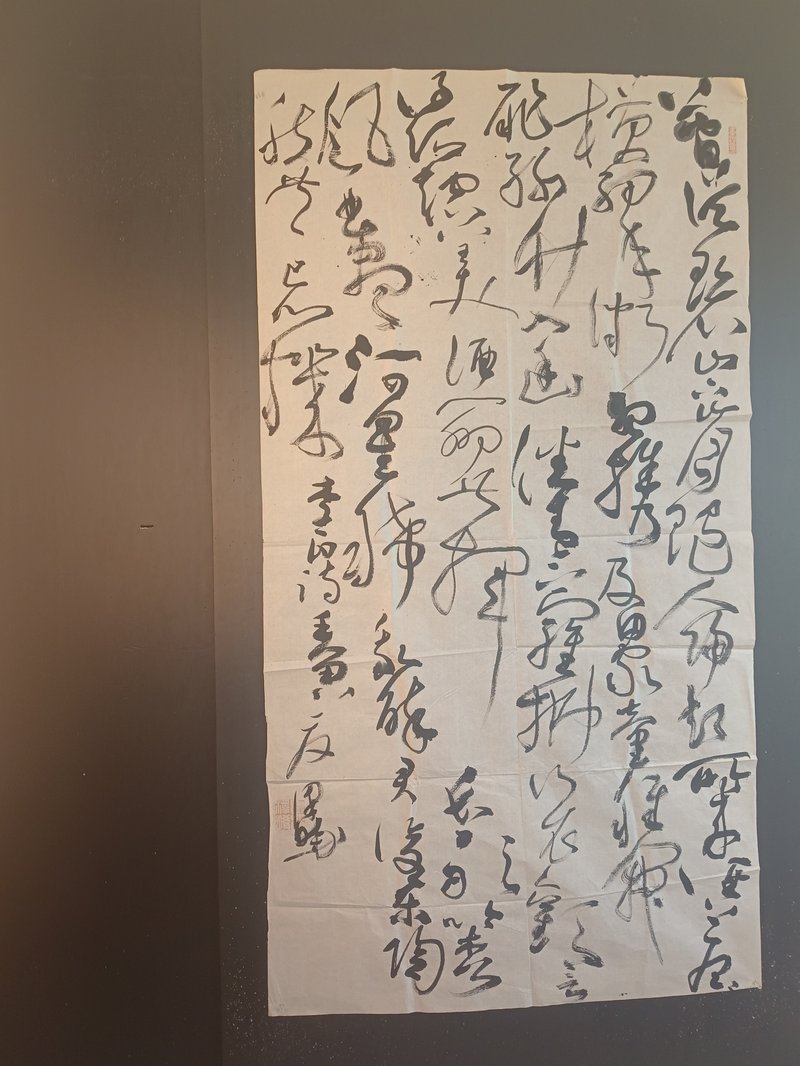 暮從碧山下山月隨人歸却顧所來徑蒼蒼
橫翠微相攜及田家童稚開荊
扉綠竹入幽徑青蘿拂行衣歡言
得所憩美酒聊共揮長歌吟松
風曲盡河星稀我醉君復樂陶
然共忘機 李白詩